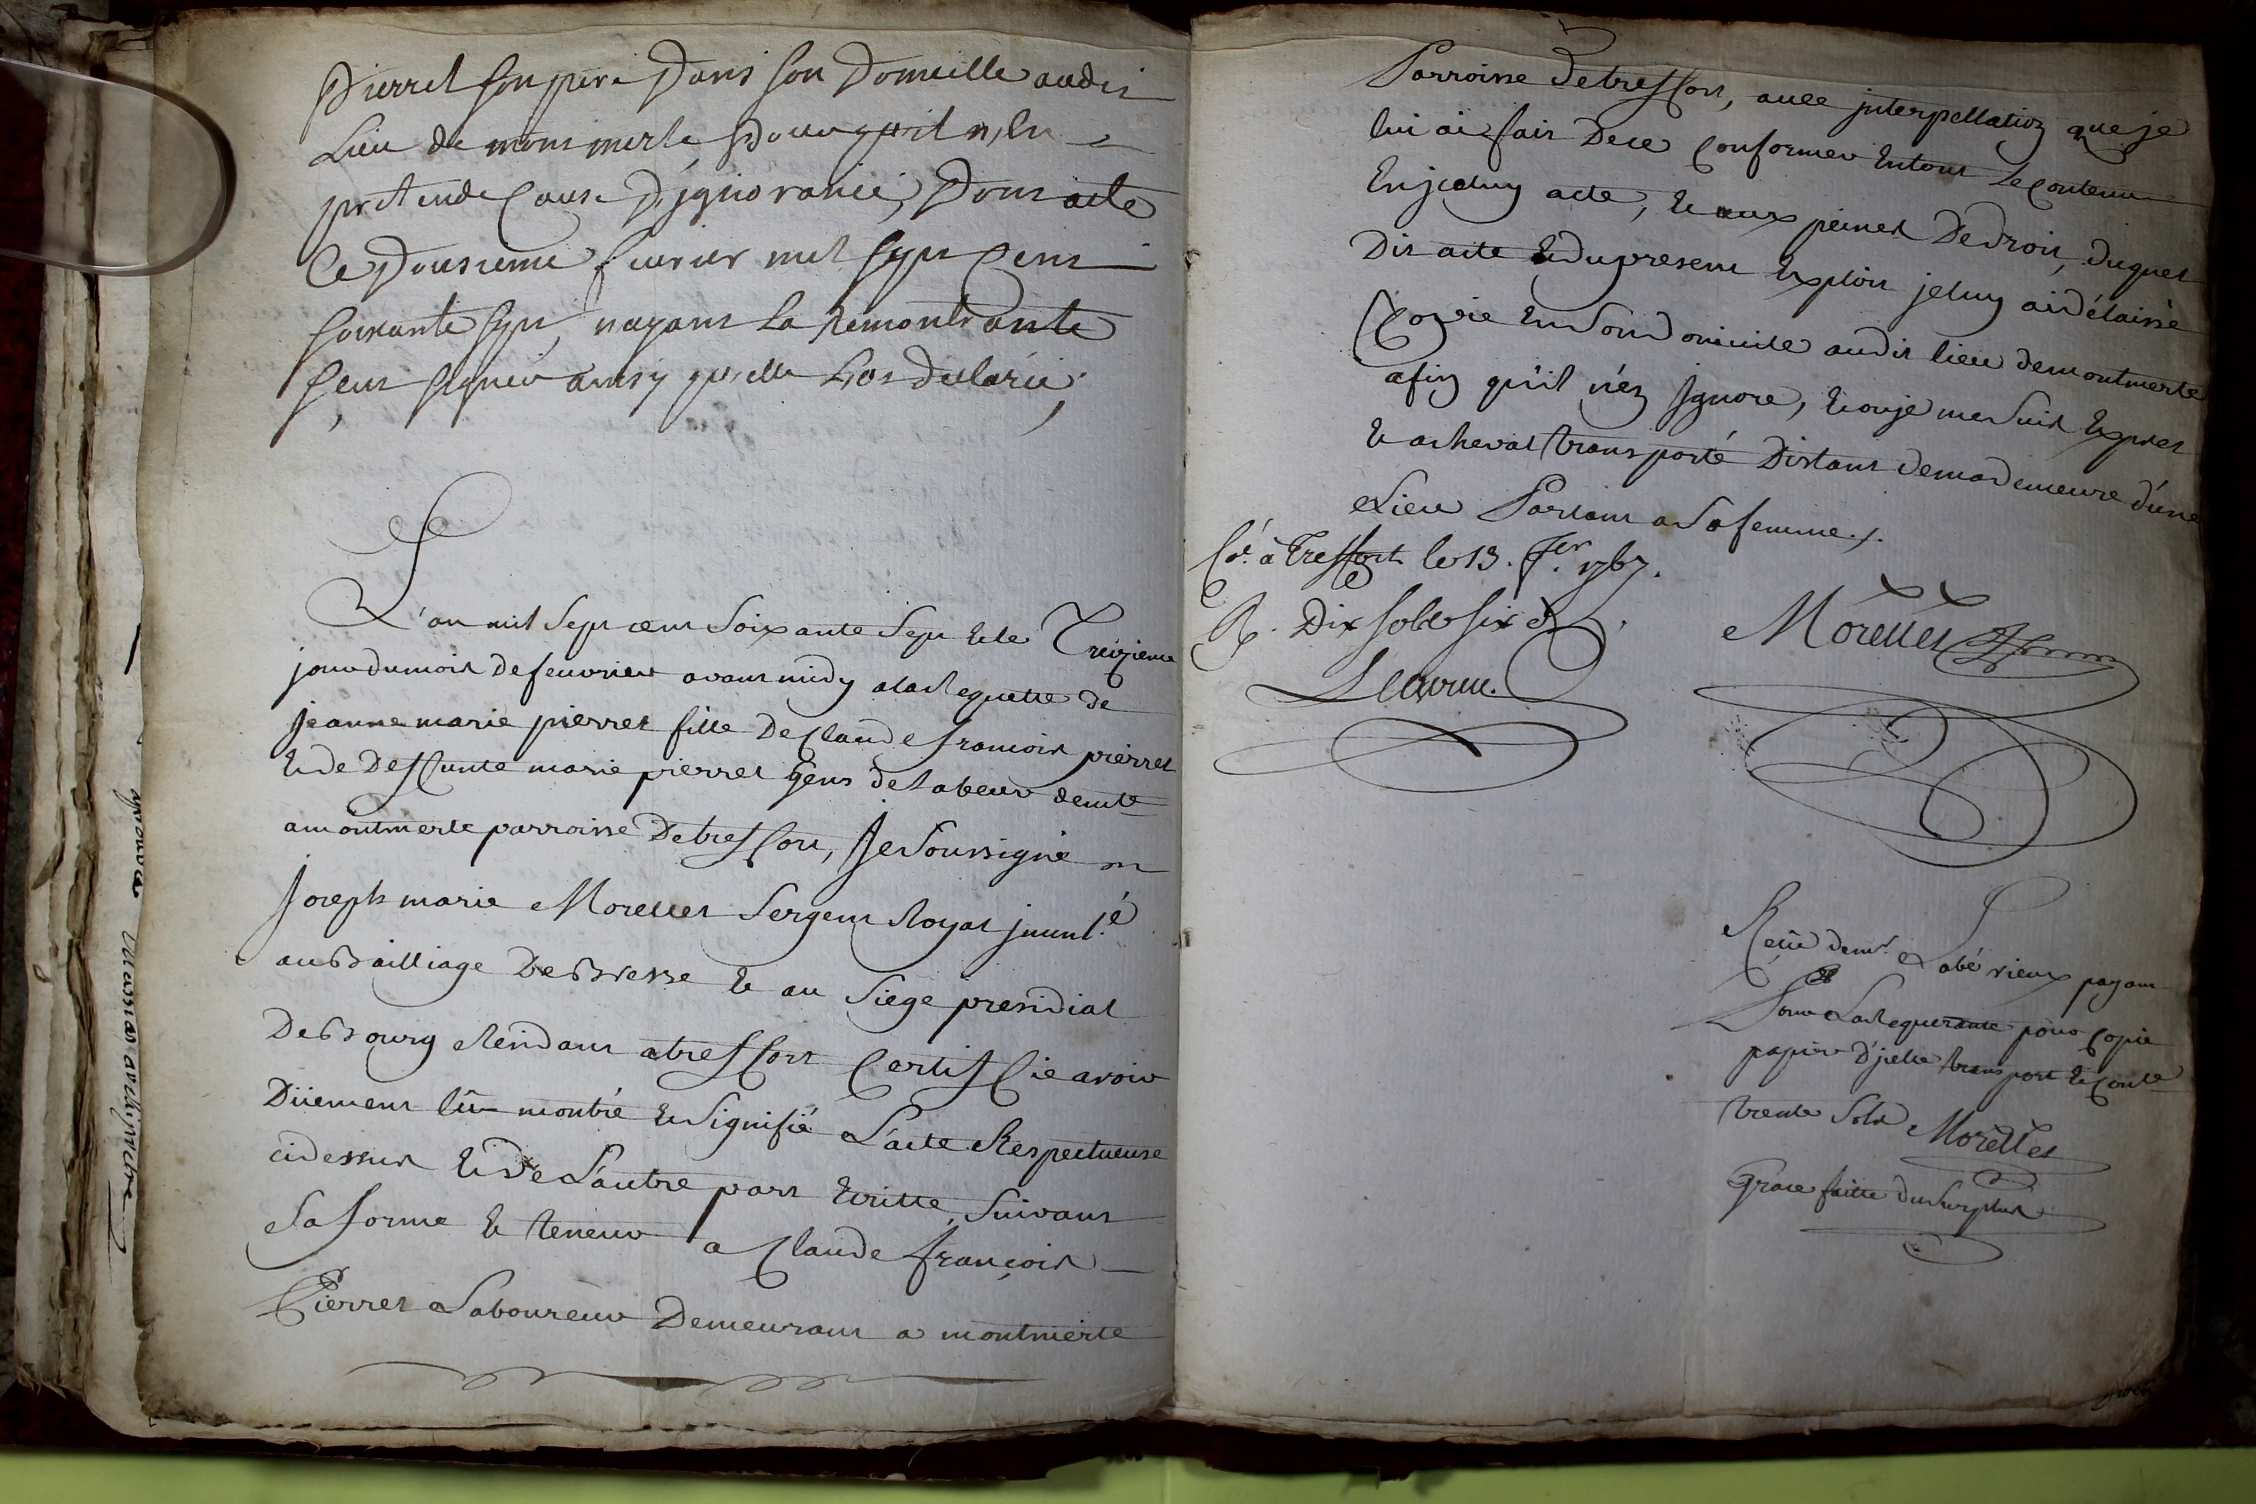 Pierret son pere Dans son Domicille audit
Lieu de montmerle Pour quil n'en
pretende Cause D'ignorance, Dont acte
Ce Dousieme fevrier mil sept Cent
soixante sept, nayant La Remontrante
sceut signér ainsy qu'elle La declaréé;
L'an mil Sept cent Soixante Sept Et le Treizieme
jour du mois de feuvrier avant midy a la Requette de
jeanne marie pierret fille De Claude francois pierret
Et de Deffunte marie pierret gens de Labeur demte
a montmerle parroisse De treffort, Je Soussigné
Joseph marie Morellet Sergent Royal jmmlé
au Bailliage De Bresse Et au Siege presidial
De Bourg Residant a treffort Certiffie avoir
Düement lû montré Et Signifié L'acte Respectueuse
cidessus Et De L'autre part Ecritte, Suivant
Sa forme Et teneur a Claude François
Pierret Laboureur Demeurant a montmerle
Parroisse De treffort, avec jnterpellation que je
lui ai fait De se Conformer En tout Le Contenu
En jceluy acte, Et aux peines De droit, duquel
Dit acte Et du present Exploit je luy ai délaissé
Copie En Son Domicile audit lieu de montmerle
afin qu'il n'en Jgnore, Et ou je me Suis Exprès
Et a cheval transporté Distant de ma demeure d'une
Lieue Parlant a Sa femme./.
Cé. à Treffort le 13. fer. 1767.
R. Dix sols six d.
Morellet
Reçû de mr. Labé vieux payant
Pour La Requerante pour Copie
papier D'jcelle transport Et Conle
trente Sols Morellet
Grace faitte du Surplus